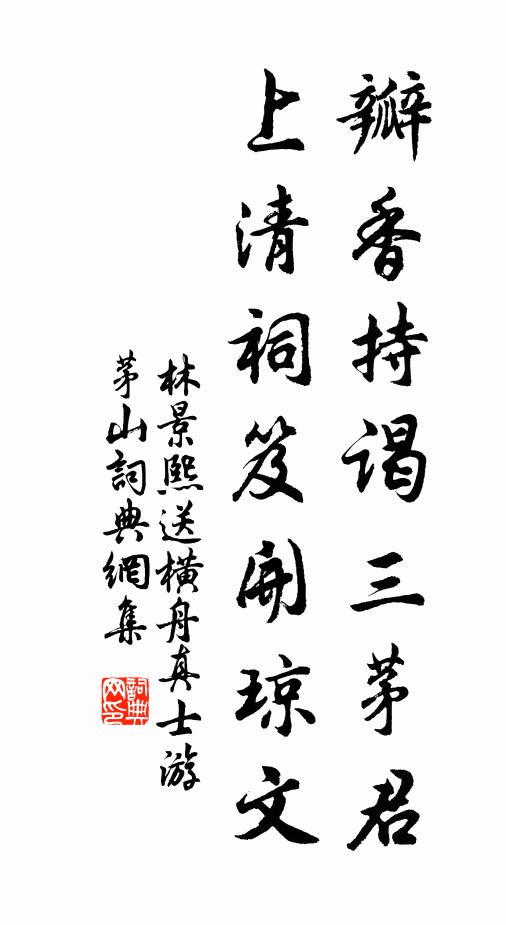 瓣香持谒三茅君
上清祠笈開琼文
林景熙送橫舟真士游
茅山詞典網集
詞典网印